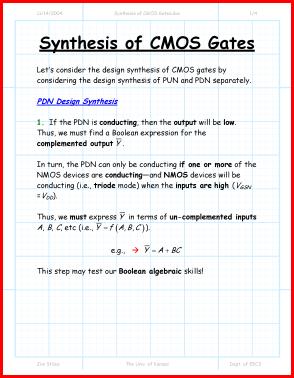 11/14/2004 Synthesis of CMOS Gates.doc 1/4
Synthesis of CMOS Gates
Let's consider the design synthesis of CMOS gates by
considering the design synthesis of PUN and PDN separately.
PDN Design Synthesis
1. If the PDN is conducting, then the output will be low.
Thus, we must find a Boolean expression for the
complemented output Y̅.
In turn, the PDN can only be conducting if one or more of the
NMOS devices are conducting—and NMOS devices will be
conducting (i.e., triode mode) when the inputs are high (V_GSN
= V_DD).
Thus, we must express Y̅ in terms of un-complemented inputs
A, B, C, etc (i.e., Y̅ = f(A,B,C)).
e.g., → Y̅ = A + BC
This step may test our Boolean algebraic skills!
Jim Stiles The Univ. of Kansas Dept. of EECS